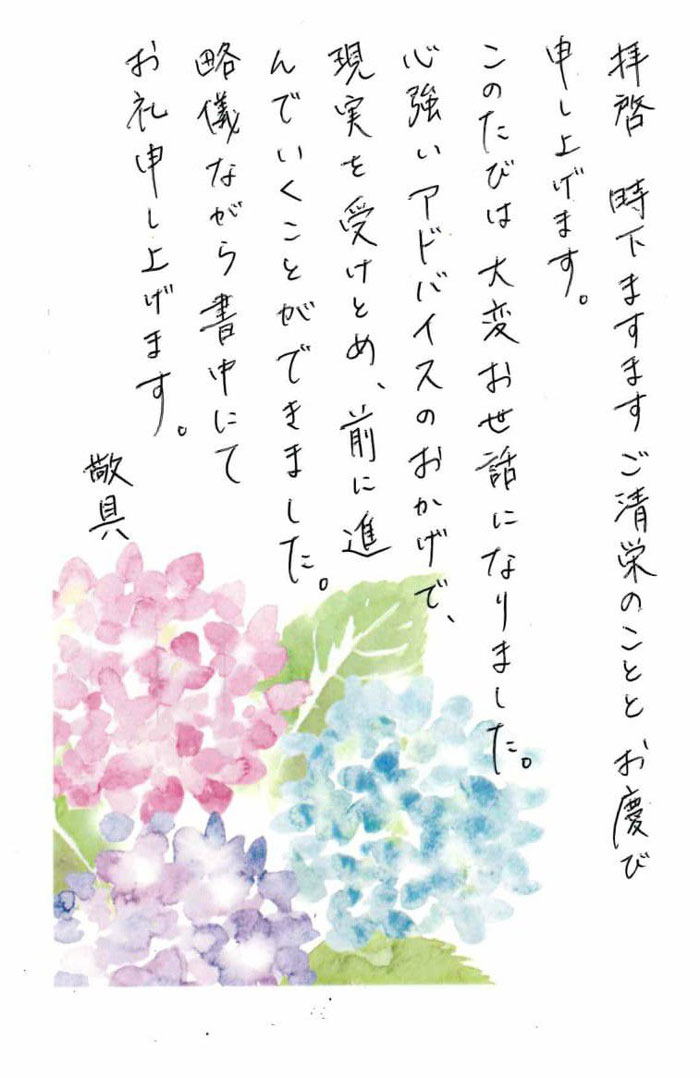 拝啓　時下ますますご清栄のこととお慶び
申し上げます。
このたびは大変お世話になりました。
心強いアドバイスのおかげで、
現実を受けとめ、前に進
んでいくことができました。
略儀ながら書中にて
お礼申し上げます。
敬具